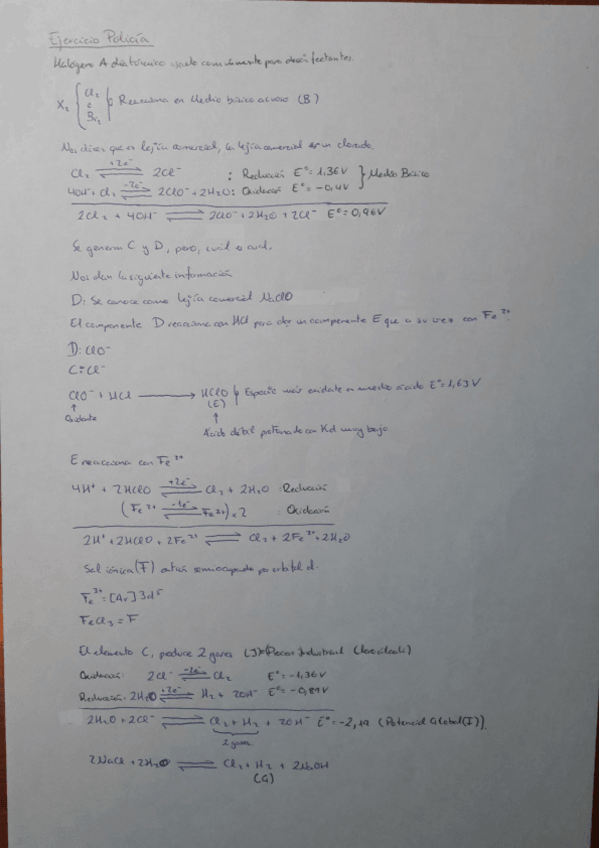 Ejercicio Policía
Halógeno A diatómico usado comúnmente para desinfectantes.
X₂ { Cl₂ ó Br₂ } Reacciona en Medio básico acuoso (B)
Nos dicen que es lejía comercial, la lejía comercial es un clorado.
Cl₂ ⇌ (+2e⁻) 2Cl⁻ : Reducción E°=1,36V } Medio Básico
4OH⁻ + Cl₂ ⇌ (-2e⁻) 2ClO⁻ + 2H₂O : Oxidación E°= -0,4V
2Cl₂ + 4OH⁻ ⇌ 2ClO⁻ + 2H₂O + 2Cl⁻ E°=0,96V
Se generan C y D, pero, cuál es cual.
Nos dan la siguiente información
D: Se conoce como lejía comercial NaClO
El componente D reacciona con HCl para dar un componente E que a su vez con Fe²⁺:
D: ClO⁻
C: Cl⁻
ClO⁻ + HCl ⟶ HClO } Especie más oxidante en medio ácido E°=1,63V
↑ (E)
Oxidante ↑
Ácido débil protonado con Kd muy bajo
E reacciona con Fe²⁺
4H⁺ + 2HClO ⇌ (+2e⁻) Cl₂ + 2H₂O : Reducción
(Fe²⁺ ⇌ (-1e⁻) Fe³⁺) x 2 : Oxidación
2H⁺ + 2HClO + 2Fe²⁺ ⇌ Cl₂ + 2Fe³⁺ + 2H₂O
Sal iónica (F) catión semiocupado por orbital d.
Fe³⁺ = [Ar] 3d⁵
FeCl₃ = F
El elemento C, produce 2 gases Proceso Industrial
Oxidación: 2Cl⁻ ⇌ (-2e⁻) Cl₂ E°= -1,36V
Reducción: 2H₂O ⇌ (+2e⁻) H₂ + 2OH⁻ E°= -0,83V
2H₂O + 2Cl⁻ ⇌ Cl₂ + H₂ + 2OH⁻ E°= -2,19 (Potencial Global (I))
2 gases
2NaCl + 2H₂O ⇌ Cl₂ + H₂ + 2NaOH
(G)